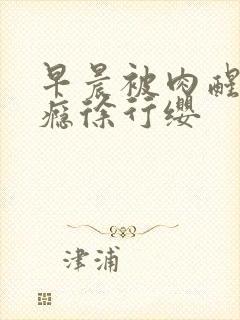 早晨被肉醒
瘾徐行缨
津浦